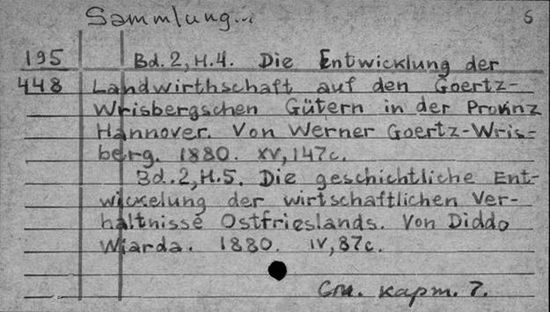 Sammlung... 6
195 Bd. 2, H. 4. Die Entwicklung der
448 Landwirthschaft auf den Goertz-
Wrisbergschen Gütern in der Provinz
Hannover. Von Werner Goertz-Wris-
berg. 1880. XV, 147c.
Bd. 2, H. 5. Die geschichtliche Ent-
wickelung der wirtschaftlichen Ver-
hältnisse Ostfrieslands. Von Diddo
Wiarda. 1880. IV, 87c.
См. карт. 7.